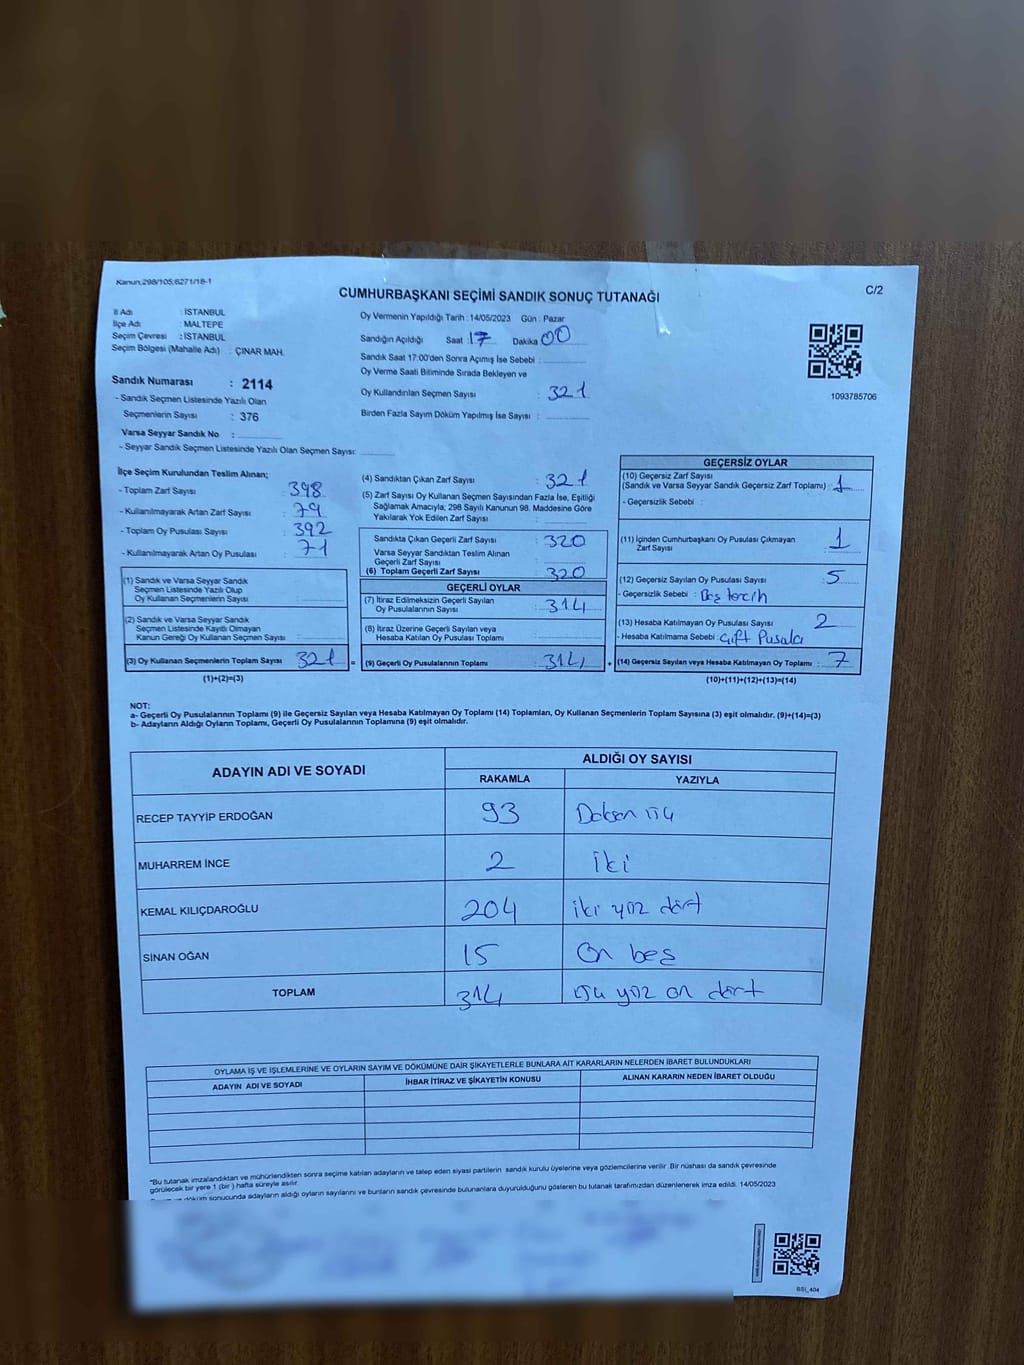 Kanun:298/105;6271/18-1
C/2
CUMHURBAŞKANI SEÇİMİ SANDIK SONUÇ TUTANAĞI
İl Adı : İSTANBUL
İlçe Adı : MALTEPE
Seçim Çevresi : İSTANBUL
Seçim Bölgesi (Mahalle Adı) : ÇINAR MAH.
Sandık Numarası : 2114
- Sandık Seçmen Listesinde Yazılı Olan
Seçmenlerin Sayısı : 376
Varsa Seyyar Sandık No :
- Seyyar Sandık Seçmen Listesinde Yazılı Olan Seçmen Sayısı:
Oy Vermenin Yapıldığı Tarih : 14/05/2023 Gün : Pazar
Sandığın Açıldığı Saat : 17 Dakika 00
Sandık Saat 17:00'den Sonra Açımış İse Sebebi :
Oy Verme Saati Bitiminde Sırada Bekleyen ve
Oy Kullandırılan Seçmen Sayısı : 321
Birden Fazla Sayım Döküm Yapılmış İse Sayısı :
1093785706
İlçe Seçim Kurulundan Teslim Alınan;
- Toplam Zarf Sayısı : 398
- Kullanılmayarak Artan Zarf Sayısı : 79
- Toplam Oy Pusulası Sayısı : 392
- Kullanılmayarak Artan Oy Pusulası : 71
(1) Sandık ve Varsa Seyyar Sandık
Seçmen Listesinde Yazılı Olup
Oy Kullanan Seçmenlerin Sayısı :
(2) Sandık ve Varsa Seyyar Sandık
Seçmen Listesinde Kayıtlı Olmayan
Kanun Gereği Oy Kullanan Seçmen Sayısı :
(3) Oy Kullanan Seçmenlerin Toplam Sayısı : 321 =
(1)+(2)=(3)
(4) Sandıktan Çıkan Zarf Sayısı : 321
(5) Zarf Sayısı Oy Kullanan Seçmen Sayısından Fazla İse, Eşitliği
Sağlamak Amacıyla; 298 Sayılı Kanunun 98. Maddesine Göre
Yakılarak Yok Edilen Zarf Sayısı :
Sandıkta Çıkan Geçerli Zarf Sayısı : 320
Varsa Seyyar Sandıktan Teslim Alınan
Geçerli Zarf Sayısı :
(6) Toplam Geçerli Zarf Sayısı : 320
GEÇERLİ OYLAR
(7) İtiraz Edilmeksizin Geçerli Sayılan
Oy Pusulalarının Sayısı : 314
(8) İtiraz Üzerine Geçerli Sayılan veya
Hesaba Katılan Oy Pusulası Toplamı :
(9) Geçerli Oy Pusulalarının Toplamı : 314 +
GEÇERSİZ OYLAR
(10) Geçersiz Zarf Sayısı
(Sandık ve Varsa Seyyar Sandık Geçersiz Zarf Toplamı) : 1
- Geçersizlik Sebebi :
(11) İçinden Cumhurbaşkanı Oy Pusulası Çıkmayan
Zarf Sayısı : 1
(12) Geçersiz Sayılan Oy Pusulası Sayısı : 5
- Geçersizlik Sebebi : Boş tercih
(13) Hesaba Katılmayan Oy Pusulası Sayısı : 2
- Hesaba Katılmama Sebebi : Çift Pusala
(14) Geçersiz Sayılan veya Hesaba Katılmayan Oy Toplamı : 7
(10)+(11)+(12)+(13)=(14)
NOT:
a- Geçerli Oy Pusulalarının Toplamı (9) ile Geçersiz Sayılan veya Hesaba Katılmayan Oy Toplamı (14) Toplamları, Oy Kullanan Seçmenlerin Toplam Sayısına (3) eşit olmalıdır. (9)+(14)=(3)
b- Adayların Aldığı Oyların Toplamı, Geçerli Oy Pusulalarının Toplamına (9) eşit olmalıdır.
ADAYIN ADI VE SOYADI ALDIĞI OY SAYISI
RAKAMLA YAZIYLA
RECEP TAYYİP ERDOĞAN 93 Doksan üç
MUHARREM İNCE 2 iki
KEMAL KILIÇDAROĞLU 204 iki yüz dört
SİNAN OĞAN 15 On beş
TOPLAM 314 üç yüz on dört
OYLAMA İŞ VE İŞLEMLERİNE VE OYLARIN SAYIM VE DÖKÜMÜNE DAİR ŞİKAYETLERLE BUNLARA AİT KARARLARIN NELERDEN İBARET BULUNDUKLARI
ADAYIN ADI VE SOYADI İHBAR İTİRAZ VE ŞİKAYETİN KONUSU ALINAN KARARIN NEDEN İBARET OLDUĞU
*Bu tutanak imzalandıktan ve mühürlendikten sonra seçime katılan adayların ve talep eden siyasi partilerin sandık kurulu üyelerine veya gözlemcilerine verilir. Bir nüshası da sandık çevresinde
görülecek bir yere 1 (bir ) hafta süreyle asılır.
döküm sonucunda adayların aldığı oyların sayılarını ve bunların sandık çevresinde bulunanlara duyurulduğunu gösteren bu tutanak tarafımızdan düzenlenerek imza edildi. 14/05/2023
BSI_404